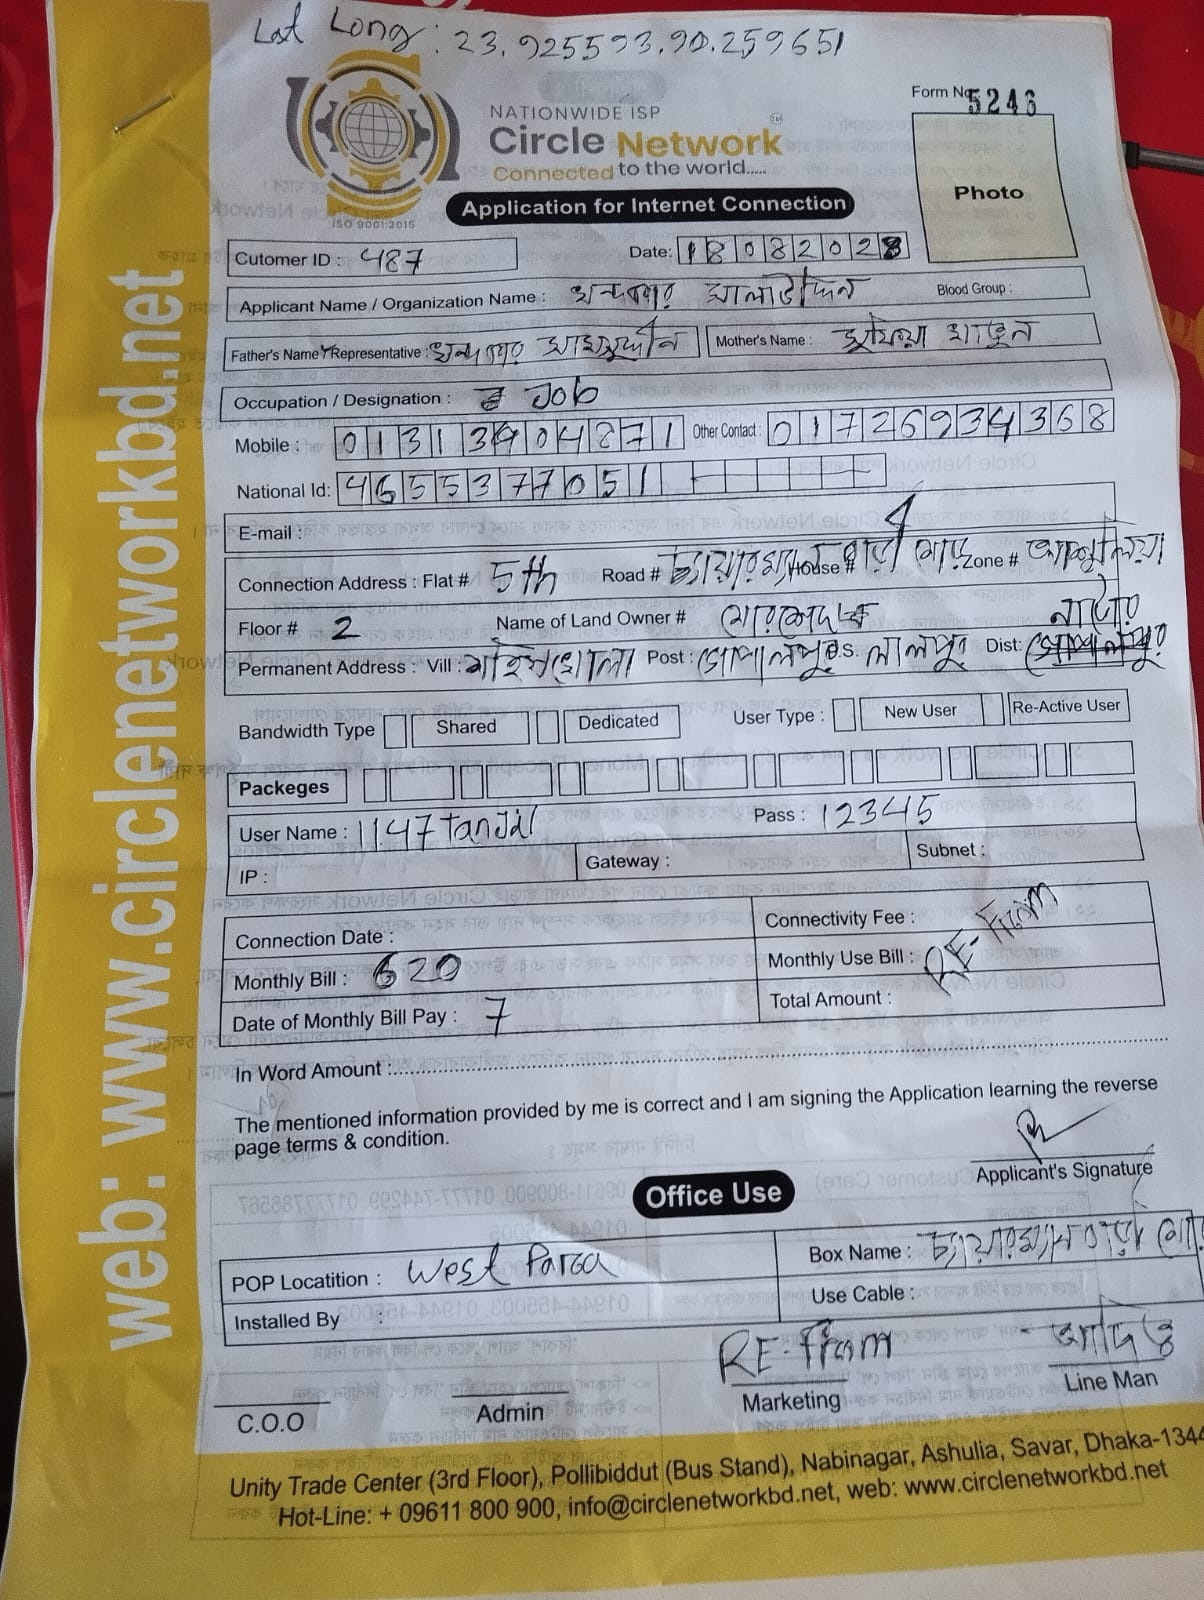 Lat Long : 23.925593.90.259651
Form No 5246
NATIONWIDE ISP
Circle Network TM
Connected to the world.....
ISO 9001:2015
Application for Internet Connection
Photo
Cutomer ID : 487 Date: 18082023
Applicant Name / Organization Name : খন্দকার আলাউদ্দিন Blood Group :
Father's Name / Representative : খন্দকার Mother's Name : সুফিয়া খাতুন
Occupation / Designation : Job
Mobile : 01313904871 Other Contact : 01726934368
National Id: 4655377051
E-mail :
Connection Address : Flat # 5th Road # House # Zone # আশুলিয়া
Floor # 2 Name of Land Owner #
Permanent Address : Vill : Post : গোপালপুর P.S. লালপুর Dist: নাটোর
Bandwidth Type Shared Dedicated User Type : New User Re-Active User
Packeges
User Name : 1147tanjil Pass : 12345
IP : Gateway : Subnet :
Connection Date : Connectivity Fee :
Monthly Bill : 620 Monthly Use Bill : RE-From
Date of Monthly Bill Pay : 7 Total Amount :
In Word Amount :
The mentioned information provided by me is correct and I am signing the Application learning the reverse
page terms & condition.
Applicant's Signature
Office Use
POP Locatition : West Para Box Name :
Installed By : Use Cable :
RE-From
C.O.O Admin Marketing Line Man
Unity Trade Center (3rd Floor), Pollibiddut (Bus Stand), Nabinagar, Ashulia, Savar, Dhaka-1344
Hot-Line: + 09611 800 900, info@circlenetworkbd.net, web: www.circlenetworkbd.net
web: www.circlenetworkbd.net